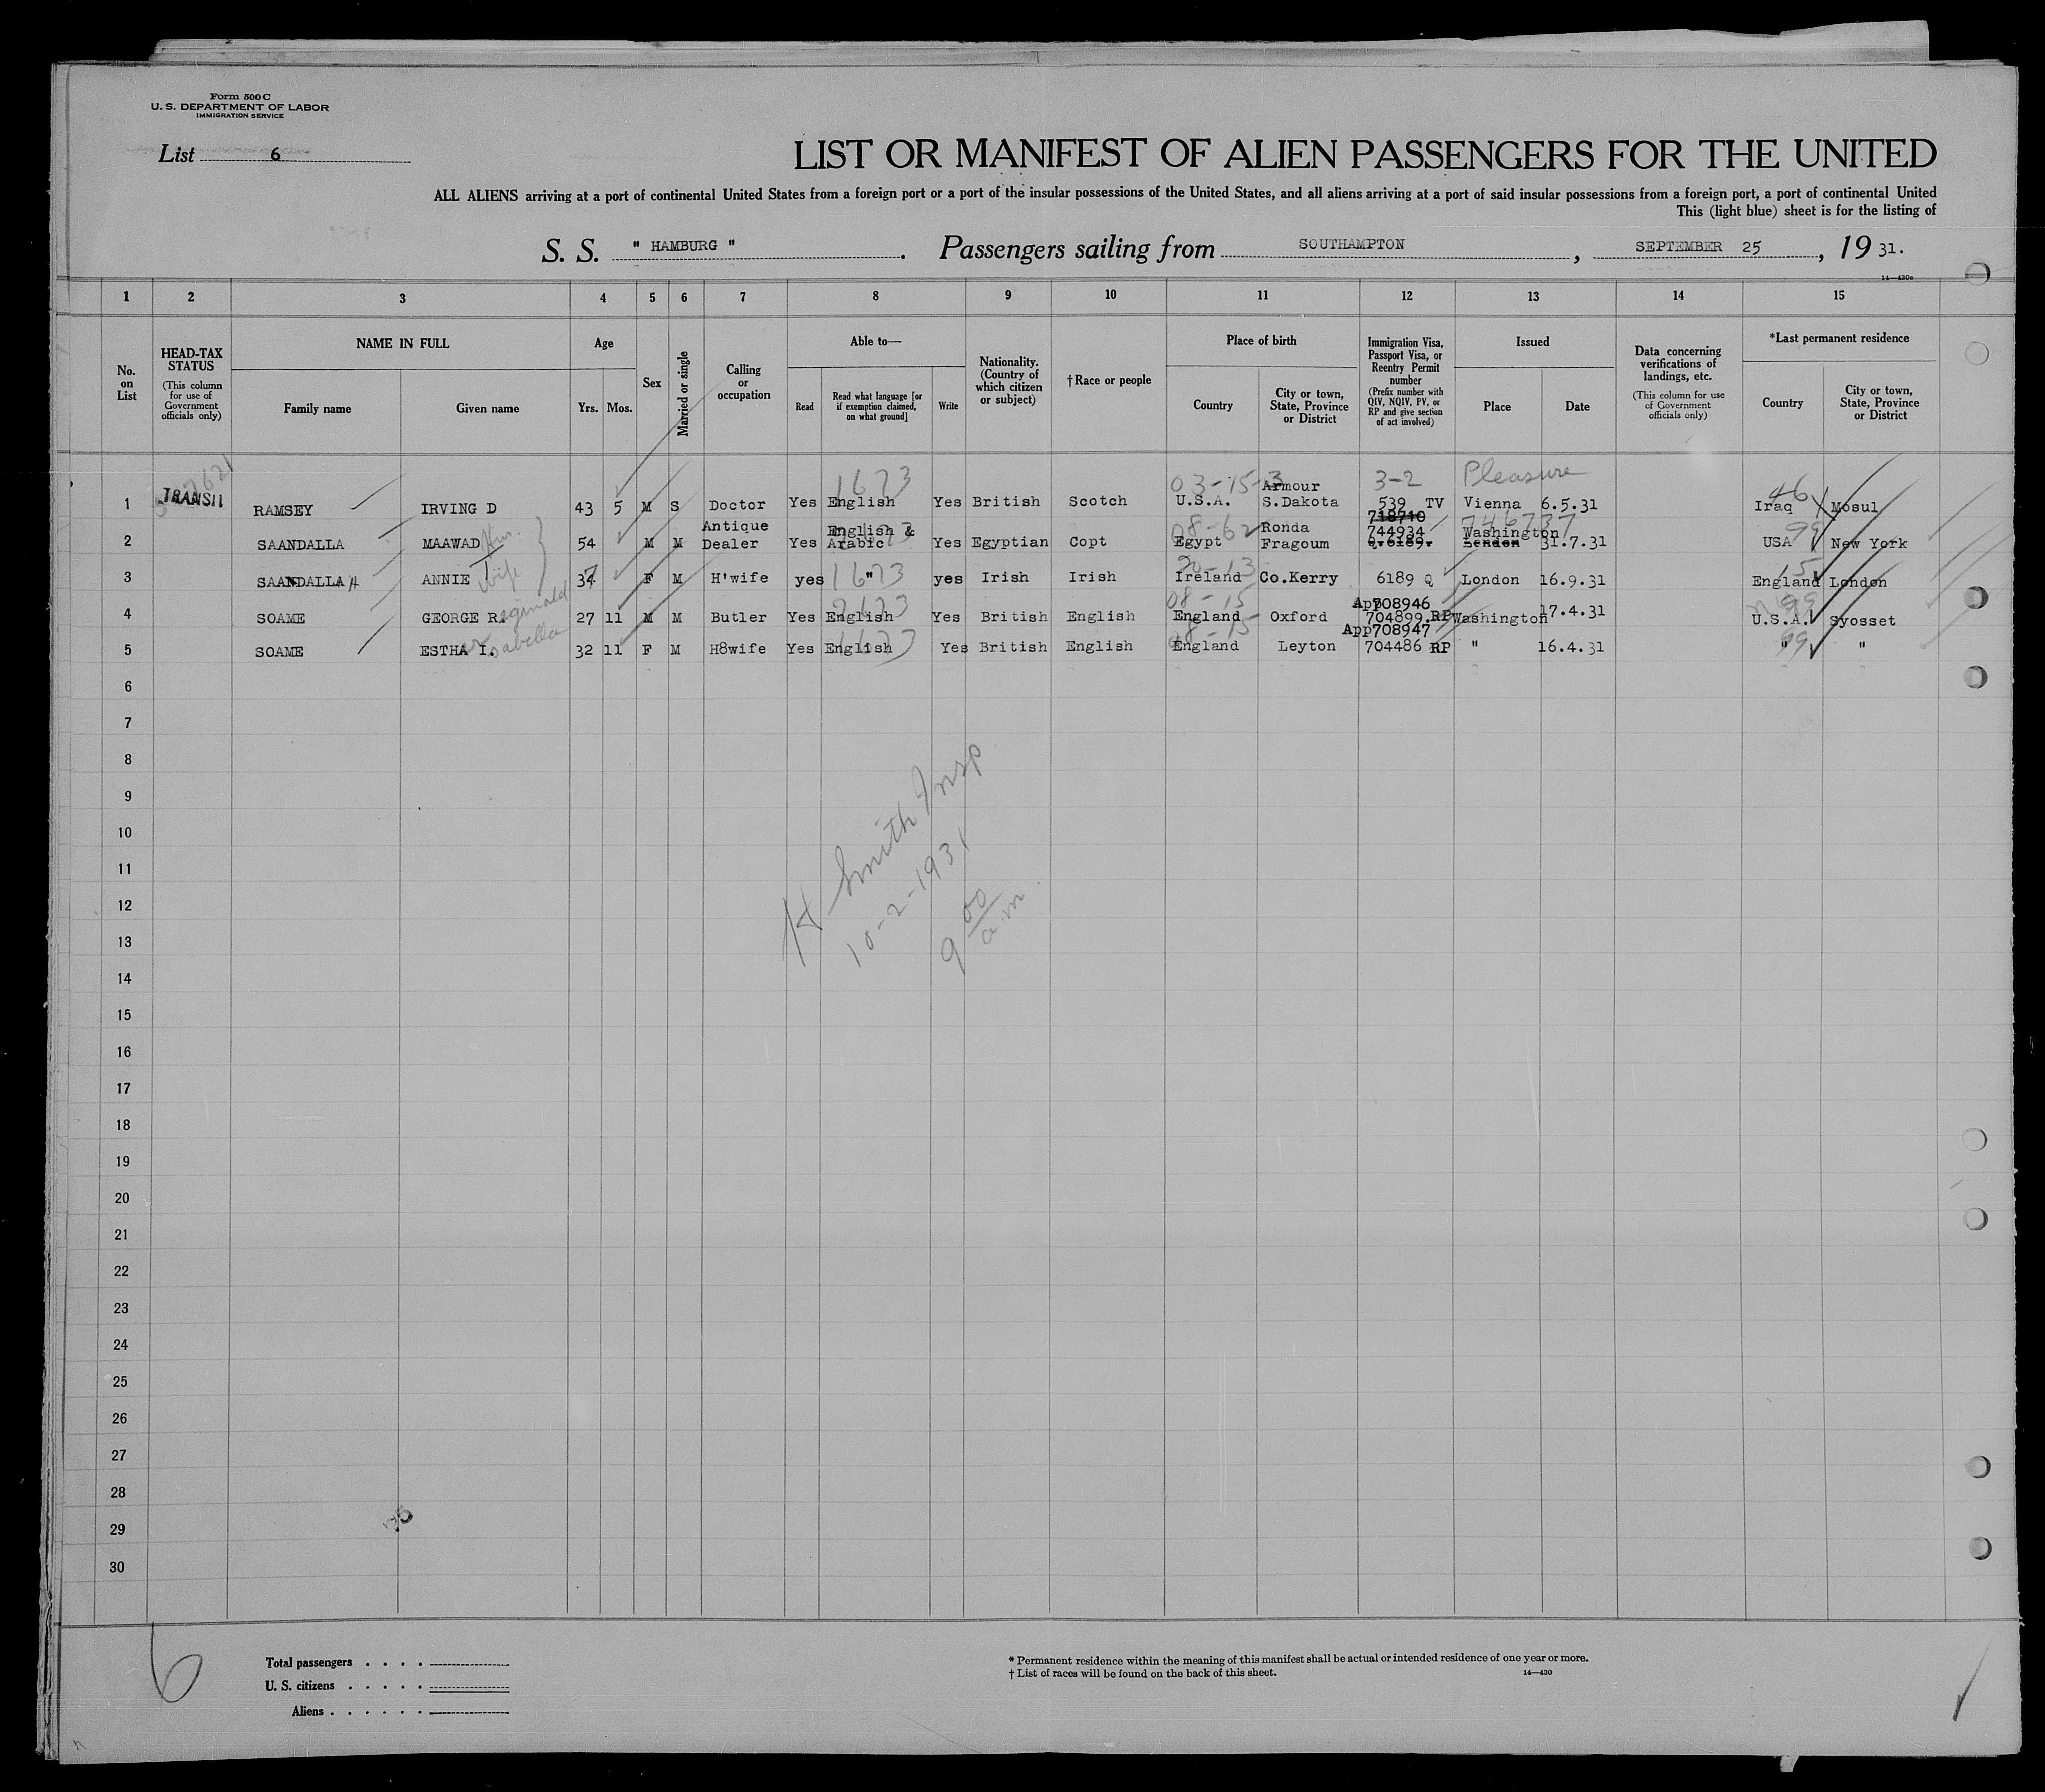 Form 500 C
U. S. DEPARTMENT OF LABOR
IMMIGRATION SERVICE
List 6
LIST OR MANIFEST OF ALIEN PASSENGERS FOR THE UNITED
ALL ALIENS arriving at a port of continental United States from a foreign port or a port of the insular possessions of the United States, and all aliens arriving at a port of said insular possessions from a foreign port, a port of continental United
This (light blue) sheet is for the listing of
S. S. " HAMBURG " . Passengers sailing from SOUTHAMPTON , SEPTEMBER 25 , 19 31.
14—430c
1 2 3 4 5 6 7 8 9 10 11 12 13 14 15
No. on List
HEAD-TAX STATUS (This column for use of Government officials only)
NAME IN FULL
Family name
Given name
Age
Yrs. Mos.
Sex
Married or single
Calling or occupation
Able to—
Read
Read what language [or if exemption claimed, on what ground]
Write
Nationality. (Country of which citizen or subject)
† Race or people
Place of birth
Country
City or town, State, Province or District
Immigration Visa, Passport Visa, or Reentry Permit number (Prefix number with QIV, NQIV, PV, or RP and give section of act involved)
Issued
Place
Date
Data concerning verifications of landings, etc. (This column for use of Government officials only)
*Last permanent residence
Country
City or town, State, Province or District
1673 03-15-3 3-2 Pleasure
1 TRANSIT RAMSEY IRVING D 43 5 M S Doctor Yes English Yes British Scotch U.S.A. Armour S.Dakota 539 TV Vienna 6.5.31 46 Iraq Mosul
718710 746737
2 SAANDALLA MAAWAD 54 M M Antique Dealer Yes English & Arabic Yes Egyptian Copt 08-62 Egypt Ronda Fragoum 744934 Q.6189. Washington London 31.7.31 99 USA New York
3 SAANDALLAH ANNIE wife 37 F M H'wife yes " 1673 yes Irish Irish 20-13 Ireland Co.Kerry 6189 Q London 16.9.31 15 England London
4 SOAME GEORGE Reginald 27 11 M M Butler Yes English Yes British English 08-15 England Oxford App708946 704899.RP Washington 17.4.31 99 U.S.A. Syosset
5 SOAME ESTHA I. or Isabella 32 11 F M H8wife Yes English 1673 Yes British English 08-15 England Leyton App708947 704486 RP " 16.4.31 99 " "
6
7
8
9
10
11
12
13
14
15
16
17
18
19
20
21
22
23
24
25
26
27
28
29
30
H Smith Insp
10-2-1931
9 00 a.m.
6
Total passengers . . . .
U. S. citizens . . . . .
Aliens . . . . . .
* Permanent residence within the meaning of this manifest shall be actual or intended residence of one year or more.
† List of races will be found on the back of this sheet.
14—430